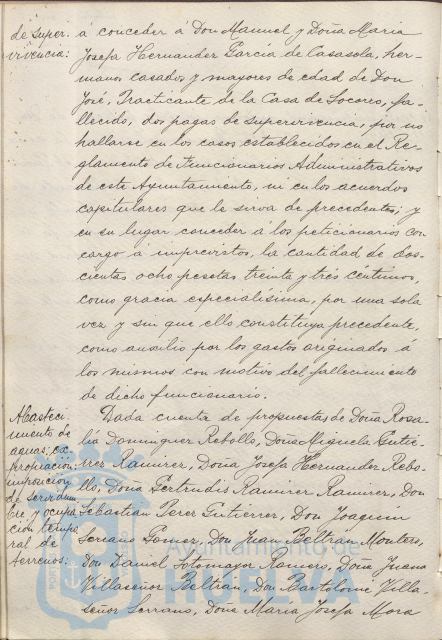 de super-
vivencia:
á conceder á Don Manuel y Doña Maria
Josefa Hernandez García de Casasola, her-
manos casados y mayores de edad de Don
José, Practicante de la Casa de Socorro, fa-
llecido, dos pagas de supervivencia, por no
hallarse en los casos establecidos en el Re-
glamento de Funcionarios Administrativos
de este Ayuntamiento, ni en los acuerdos
capitulares que le sirva de precedentes; y
en su lugar conceder á los peticionarios con
cargo á imprevistos, la cantidad de dos-
cientas ocho pesetas treinta y tres céntimos,
como gracia especialísima, por una sola
vez y sin que ello constituya precedente,
como auxilio por los gastos originados á
los mismos con motivo del fallecimiento
de dicho funcionario.
Abasteci
miento de
aguas, ex
propiacion:
imposicion
de servidum
bre y ocupa
cion tempo
ral de
terrenos:
Dada cuenta de propuestas de Doña Rosa-
lia Dominguez Rebollo, Doña Miguela Gutie-
rrez Ramirez, Doña Josefa Hernandez Rebo-
llo, Doña Gertrudis Ramirez Ramirez, Don
Sebastian Perez Gutierrez, Don Joaquin
Serrano Gomez, Don Juan Beltran Montero,
Don Daniel Sotomayor Romero, Doña Juana
Villaseñor Beltran, Don Bartolomé Villa-
señor Serrano, Doña Maria Josefa Mora
Ayuntamiento de
HUELVA